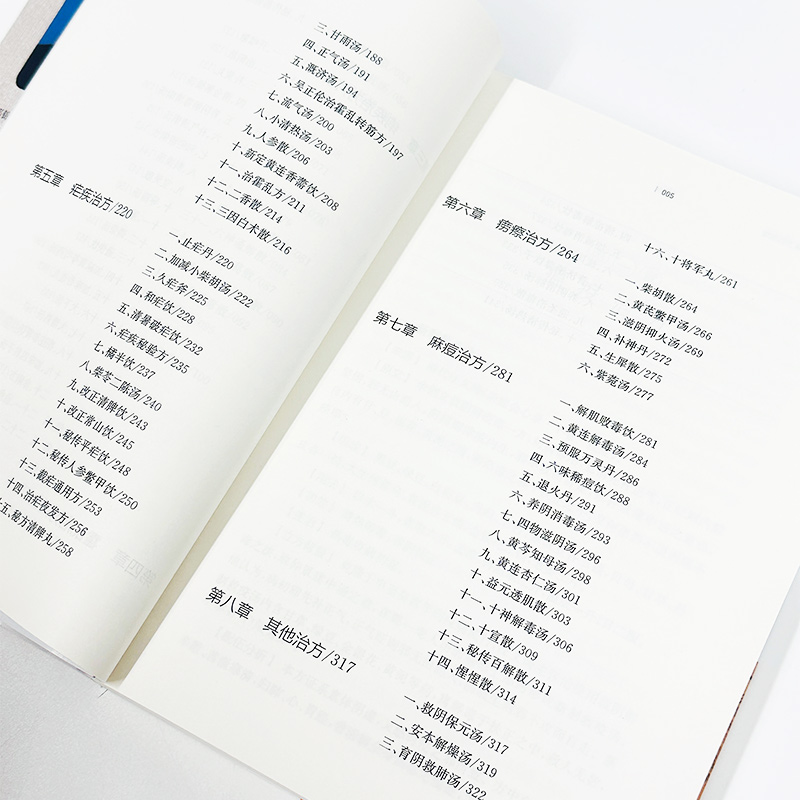 三、甘雨汤/188
四、正气汤/191
五、溉济汤/194
六、吴正伦治霍乱转筋方/197
七、流气汤/200
八、小清热汤/203
九、人参散/206
十、新定黄连香薷饮/208
十一、治霍乱方/211
十二、二香散/214
十三、三因白术散/216
第五章 疟疾治方/220
一、止疟丹/220
二、加减小柴胡汤/222
三、久疟斧/225
四、和疟饮/228
五、清暑破疟饮/232
六、疟疾秘验方/235
七、橘半饮/237
八、柴苓二陈汤/240
九、改正清脾饮/243
十、改正常山饮/245
十一、秘传平疟饮/248
十二、秘传人参鳖甲饮/250
十三、截疟通用方/253
十四、治疟夜发方/256
十五、秘方清脾丸/258
005
十六、十将军丸/261
第六章 痨瘵治方/264
一、柴胡散/264
二、黄芪鳖甲汤/266
三、滋阴抑火汤/269
四、补神丹/272
五、生犀散/275
六、紫菀汤/277
第七章 麻痘治方/281
一、解肌败毒饮/281
二、黄连解毒汤/284
三、预服万灵丹/286
四、六味稀痘饮/288
五、退火丹/291
六、养阴消毒汤/293
七、四物滋阴汤/296
八、黄芩知母汤/298
九、黄连杏仁汤/301
十、益元透肌散/303
十一、十神解毒汤/306
十二、十宣散/309
十三、秘传百解散/311
十四、惺惺散/314
第八章 其他治方/317
一、救阴保元汤/317
二、安本解燥汤/319
三、育阴救肺汤/322